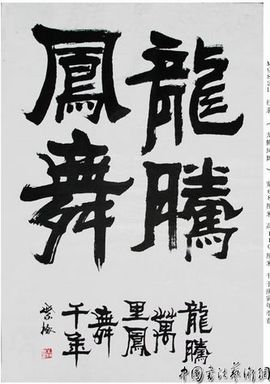 龍騰
鳳舞
龍騰
萬
里鳳
舞
千年
中国書法藝術網